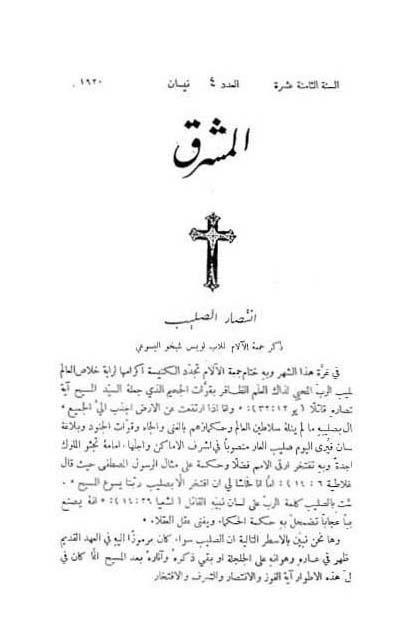 السنة الثامنة عشرة العدد ٤ نيسان ١٩٢٠
المشرق
انتصار الصليب
ذكر جمعة الآلام للاب لويس شيخو اليسوعي
في غرَّة هذا الشهر وبه ختام جمعة الآلام تجدّد الكنيسة اكرامها لراية خلاص العالم
ليب الربّ المحيي لذاك العلَم الظافر بقوَّات الجحيم الذي جعلهُ السيّد المسيح آية
تصارهِ قائلًا (يو ١٢: ٣٢): «وانا اذا ارتفعت عن الارض اجذب اليَّ الجميع»
ال بصليبهِ ما لم ينلهُ سلاطين العالم وحكماؤهم بالغنى والجاه وقوَّات الجنود وبلاغة
سان فيُرى اليوم صليب العار منصوبًا في اشرف الاماكن واجلّها، امامهُ تجثو الملوك
اجدةً وبهِ تفتخر ارقى الامم فضلًا وحكمة على مثال الرسول المصطفى حيث قال
غلاطية ٦: ١٤): «امَّا انا فحاشا لي ان افتخر الَّا بصليب ربّنا يسوع المسيح».
تمَّت بالصليب كلمة الربّ على لسان نبيّهِ القائل (اشعيا ٢٩: ١٤): «انهُ يصنع
عجبًا عُجابًا تضمحلّ بهِ حكمة الحكماء ويفنى عقل العقلاء».
وها نحن نبيّن بالاسطر التالية ان الصليب سواء كان مرموزًا اليهِ في العهد القديم
ظهر في عارهِ وهوانهِ على الجلجلة او بقي ذكرهُ وآثارهُ بعد المسيح انَّما كان في
ل هذه الاطوار آية الفوز والانتصار والشرف والافتخار